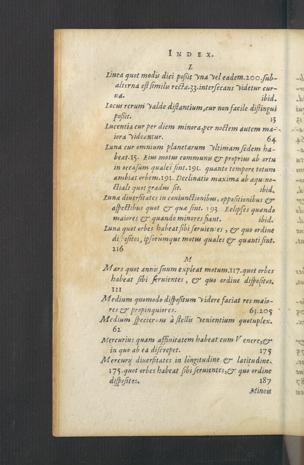 INDEX.
L
Linea quot modis dici possit vna vel eadem. 200. sub-
alterna est similis recta. 33. intersecans videtur cur-
ua. ibid.
Locus rerum valde distantium, cur non facile distingui
possit. 13
Lucentia cur per diem minora, per noctem autem ma-
iora videantur. 64
Luna cur omnium planetarum vltimam sedem ha-
beat. 15. Eius motus communis & proprius ab ortu
in occasum quales sint. 191. quanto tempore totum
ambiat orbem. 191. Declinatio maxima ab æquino-
ctiali quot gradus sit. ibid.
Lunæ diuersitates in coniunctionibus, oppositionibus &
aspectibus quot & quæ sint. 193 Eclipses quando
maiores & quando minores fiant. ibid.
Luna quot orbes habeat sibi seruientes, & quo ordine
dispositos, ipsorumque motus quales & quanti sint.
216
M
Mars quot annis suum expleat motum. 117. quot orbes
habeat sibi seruientes, & quo ordine dispositos.
111
Medium quomodo dispositum videre faciat res maio-
res & propinquiores. 63. 205
Medium specierum à stellis venientium quotuplex.
62
Mercurius quam affinitatem habeat cum Venere, &
in quo ab ea discrepet. 175
Mercurij diuersitates in longitudine & latitudine.
175. quot orbes habeat sibi seruientes, & quo ordine
dispositos. 187
Minois